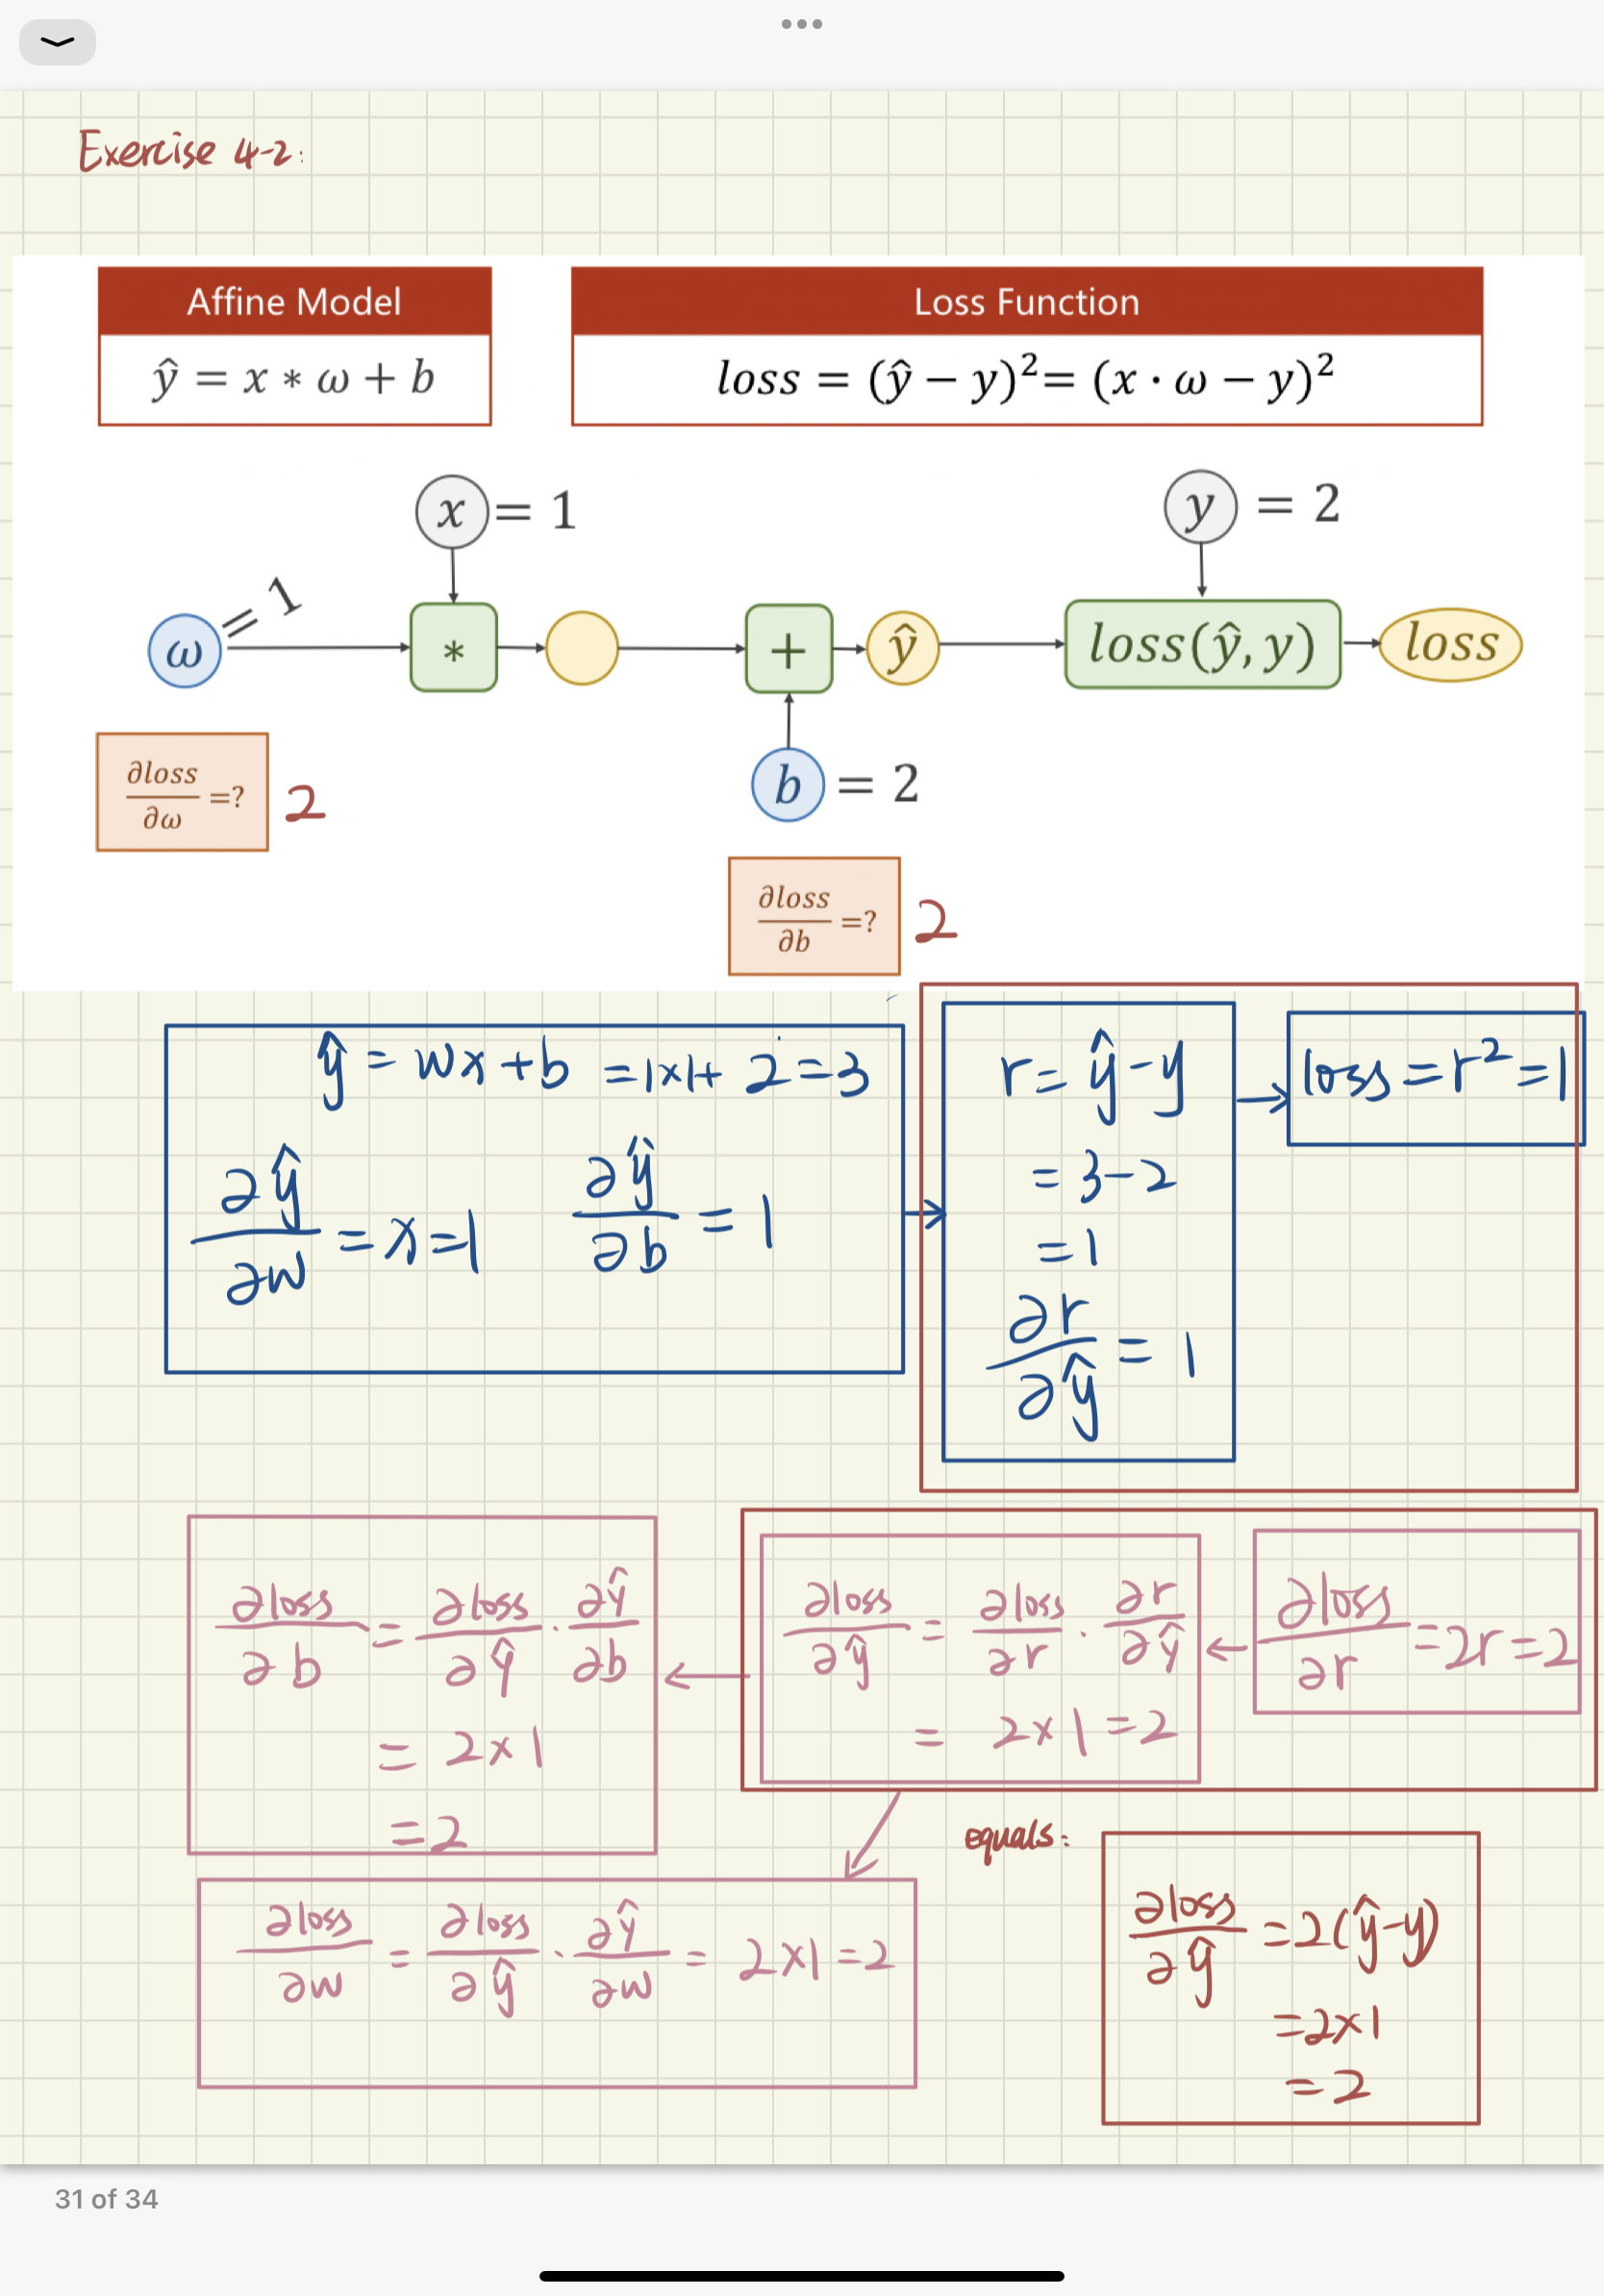 Exercise 4-2:
Affine Model
ŷ = x ∗ ω + b
Loss Function
loss = (ŷ − y)²= (x · ω − y)²
x = 1
y = 2
ω = 1
∗
+
ŷ
loss(ŷ, y)
loss
b = 2
∂loss/∂ω =? 2
∂loss/∂b =? 2
ŷ = wx + b = 1×1 + 2 = 3
∂ŷ/∂w = x = 1
∂ŷ/∂b = 1
r = ŷ − y
= 3 − 2
= 1
∂r/∂ŷ = 1
loss = r² = 1
∂loss/∂r = 2r = 2
∂loss/∂ŷ = ∂loss/∂r · ∂r/∂ŷ
= 2 × 1 = 2
∂loss/∂b = ∂loss/∂ŷ · ∂ŷ/∂b
= 2 × 1
= 2
∂loss/∂w = ∂loss/∂ŷ · ∂ŷ/∂w = 2 × 1 = 2
equals:
∂loss/∂ŷ = 2(ŷ−y)
= 2×1
= 2
31 of 34